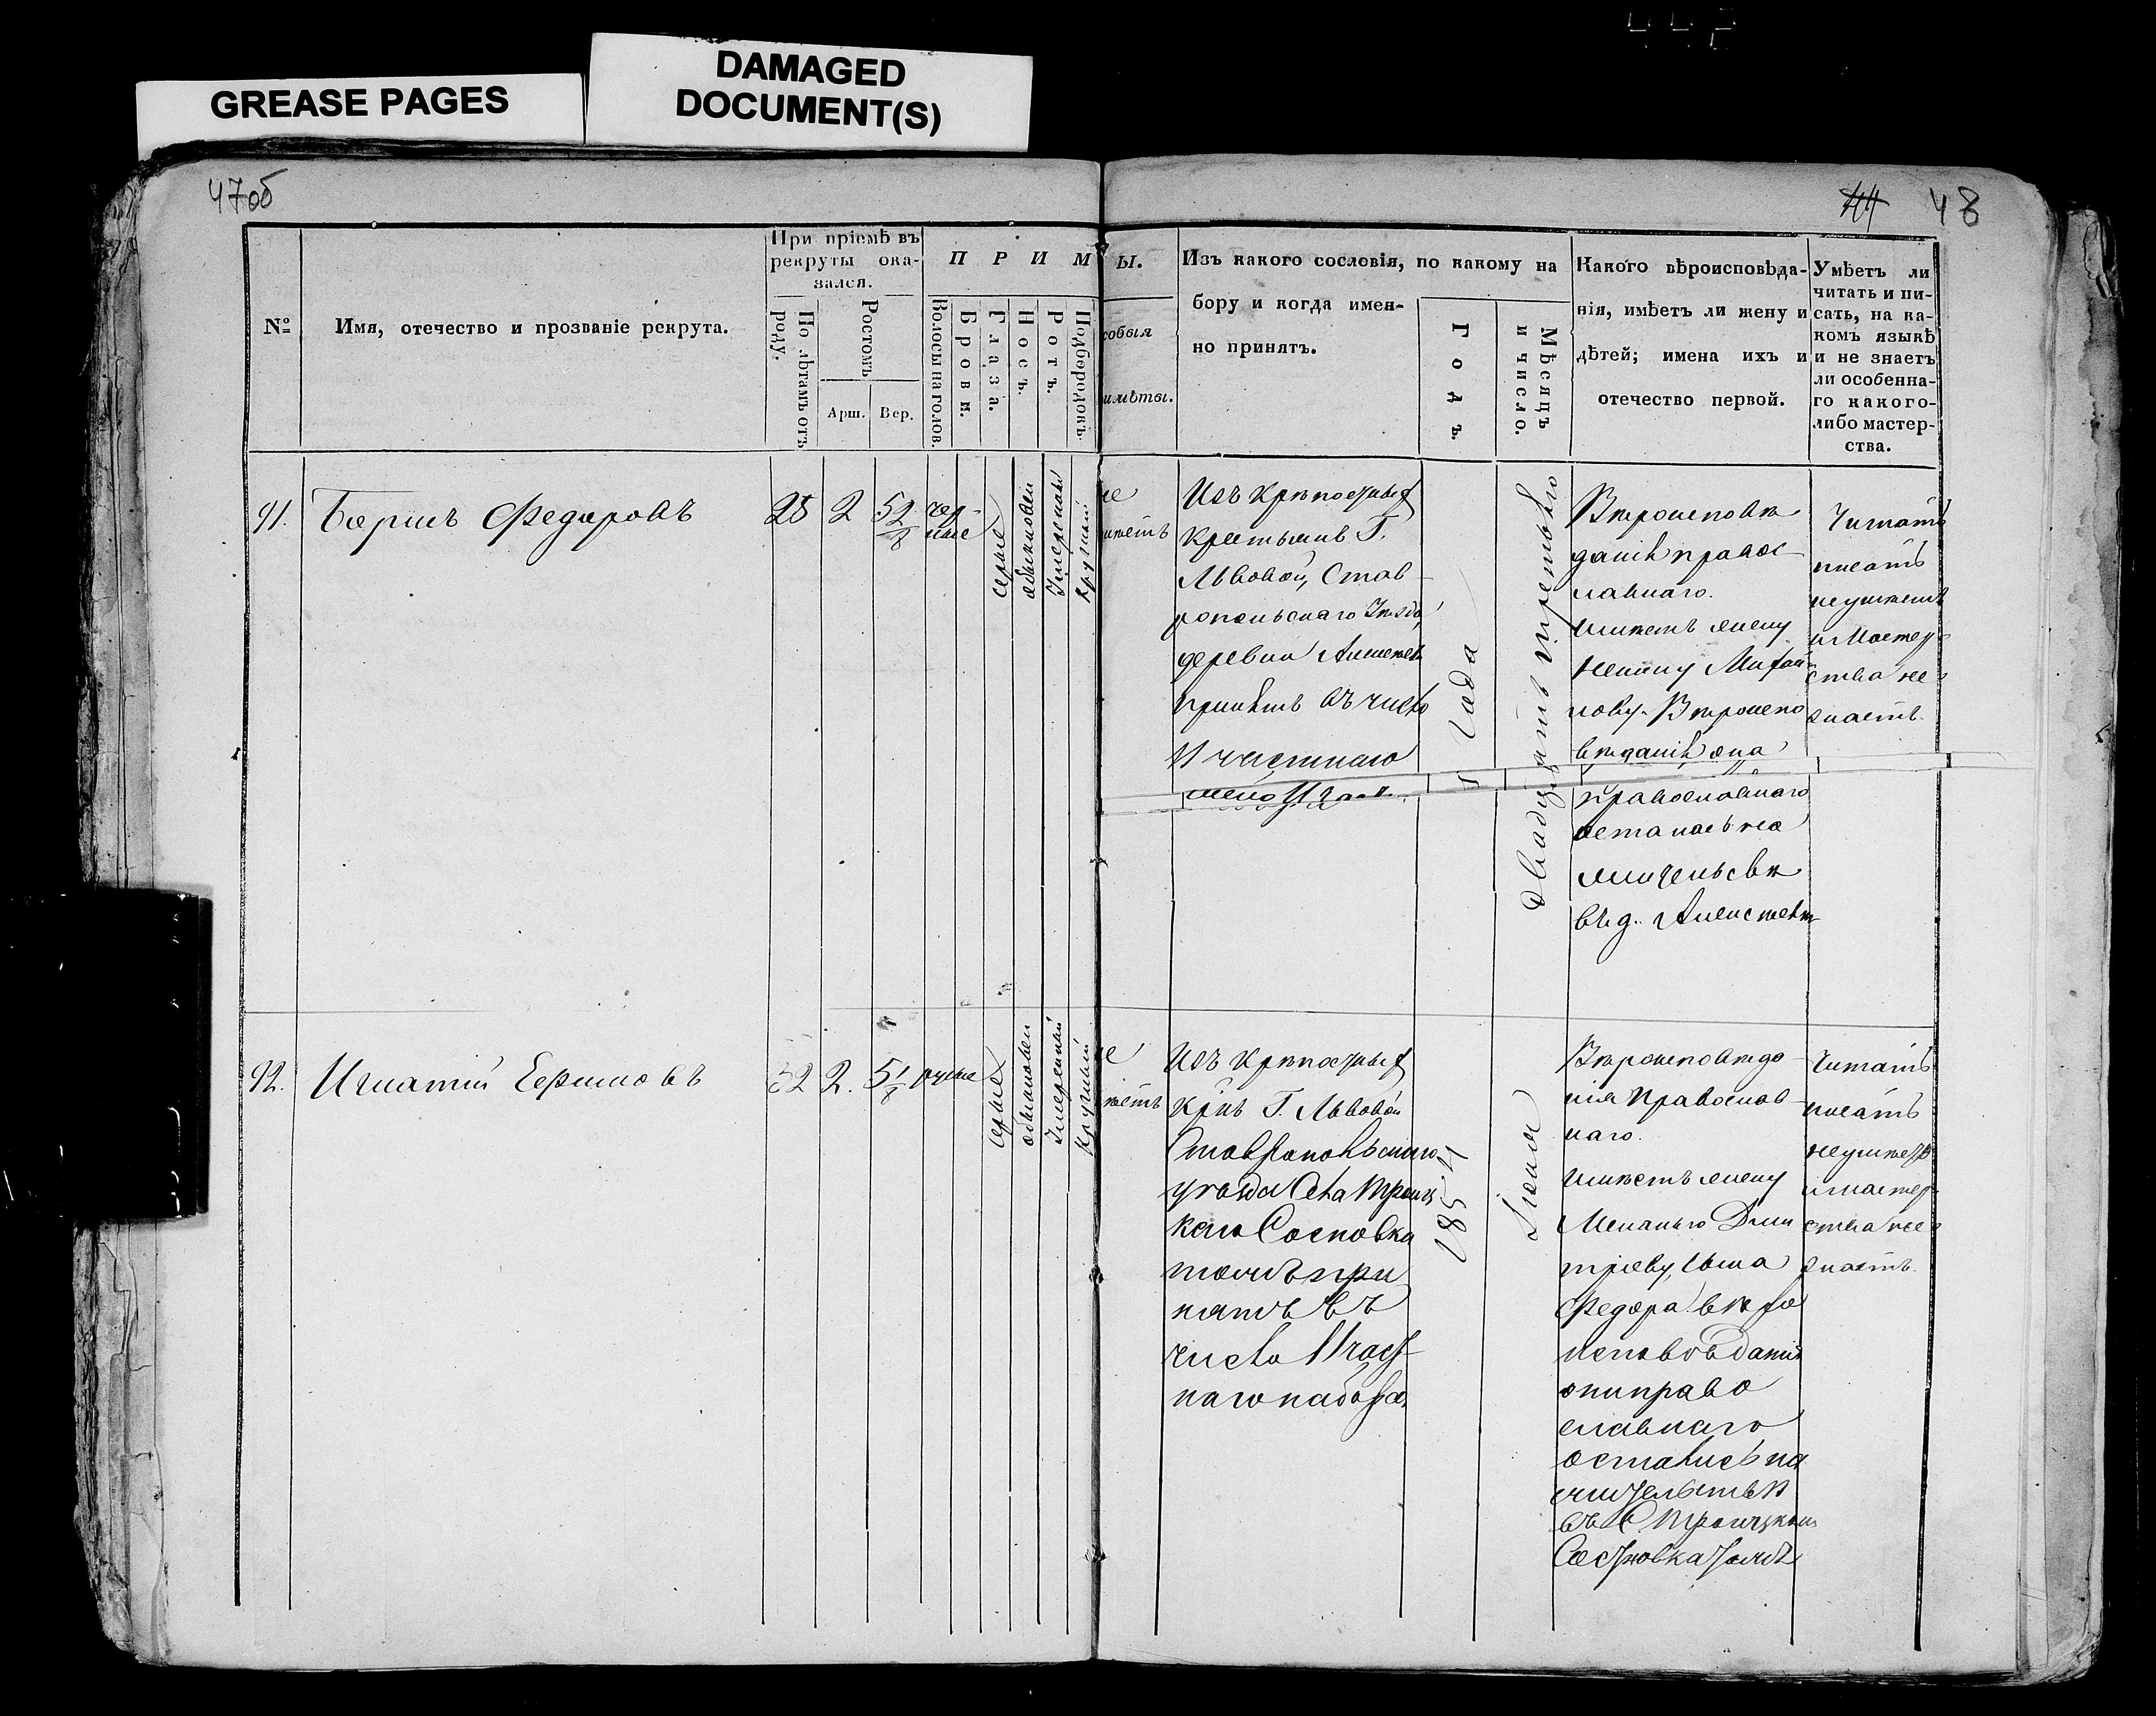 GREASE PAGES
DAMAGED
DOCUMENT(S)
47об
44 48
№
Имя, отечество и прозваніе рекрута.
При пріемѣ въ
рекруты ока-
зался.
По лѣтамъ отъ
роду.
Ростомъ
Арш. Вер.
П Р И М
Волосы на голов.
Брови.
Глаза.
Носъ.
Ротъ.
Подбородокъ
Ы.
собыя
имѣты.
Изъ какого сословія, по какому на
бору и когда имен-
но принятъ.
Годъ.
Мѣсяцъ
и число.
Какого вѣроисповѣда-
нія, имѣетъ ли жену и
дѣтей; имена ихъ и
отечество первой.
Умѣетъ ли
читать и пи-
сать, на ка-
комъ языкѣ
и не знаетъ
ли особенна-
го какого-
либо мастер-
ства.
91.
Борисъ Федоровъ
25 2 5 2/8
чер-
ные
серые
обыкновен
Умеренный
Круглый
не
имѣетъ
Изъ крѣпостныхъ
крестьянъ Г.
Львовой, Став-
ропольскаго Уѣзда,
деревни
принятъ въ число
11 частнаго
Вѣроисповѣ
данія правос-
лавнаго.
имѣетъ жену
Михай
лову. Вѣроиспо
вѣданія она
православнаго
осталась на
жительствѣ
въ д.
Читать
писать
неумѣетъ
и мастер-
ства не
знаетъ.
1854 года
Двадцать третьяго
Июня
92.
Игнатій Ефимовъ
32 2. 5 1/8 русые
серые
обыкновен
Умеренный
Круглый
не
мѣетъ
Изъ крѣпостныхъ
крінъ Г. Львовой
Ставропольскаго
уѣзда Села Троицъ
каго Сосновка
тожъ при
нятъ въ
число 11 част-
наго набора.
Вѣроисповѣда-
нія Православ-
наго.
имѣетъ жену
Меланью Дми
тріеву, сына
Федора вѣро
исповѣданія
они право
славнаго
остались на
жительствѣ
въ С. Троицкомъ
Сосновка тожъ
Читать
писать
неумѣетъ
и мастер-
ства не
знаетъ.